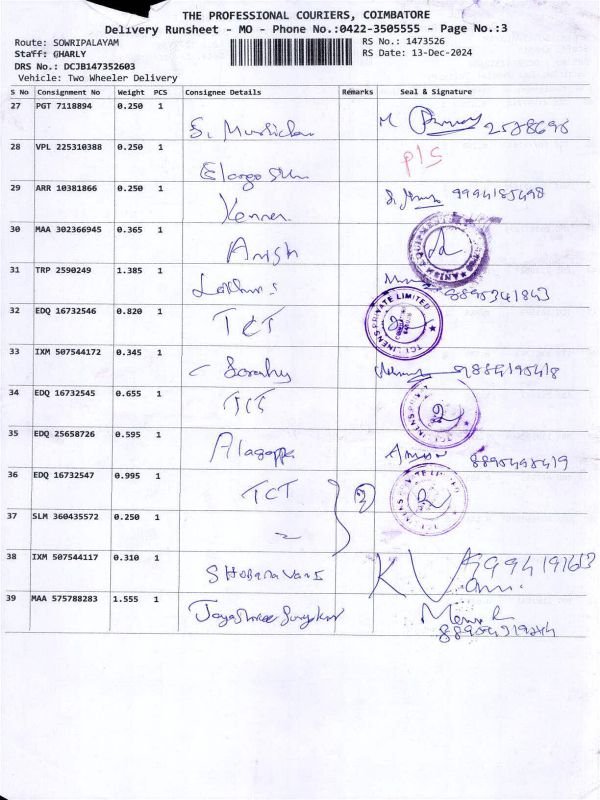 THE PROFESSIONAL COURIERS, COIMBATORE
Delivery Runsheet - MO - Phone No.:0422-3505555 - Page No.:3
Route: SOWRIPALAYAM
RS No.: 1473526
Staff: GHARLY
RS Date: 13-Dec-2024
DRS No.: DCJB147352603
Vehicle: Two Wheeler Delivery
S No Consignment No Weight PCS Consignee Details Remarks Seal & Signature
27 PGT 7118894 0.250 1
28 VPL 225310388 0.250 1 pls
29 ARR 10381866 0.250 1 Kannan 9994185498
30 MAA 302366945 0.365 1 Anish
31 TRP 2590249 1.385 1 8895341843
32 EDQ 16732546 0.820 1 TCT TCI LINENS PRIVATE LIMITED
33 IXM 507544172 0.345 1
34 EDQ 16732545 0.655 1 TCT
35 EDQ 25658726 0.595 1 Alagappa
36 EDQ 16732547 0.995 1 TCT 2
37 SLM 360435572 0.250 1
38 IXM 507544117 0.310 1 Shobana Vani
39 MAA 575788283 1.555 1